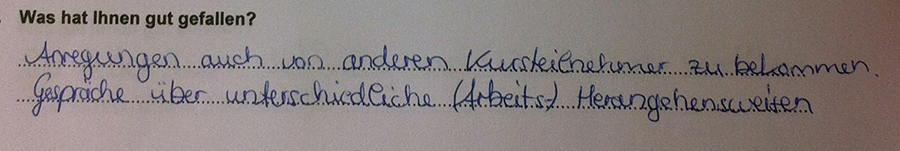 Was hat Ihnen gut gefallen?
Anregungen auch von anderen Kursteilnehmer zu bekommen.
Gespräche über unterschiedliche (Arbeits-) Herangehensweisen